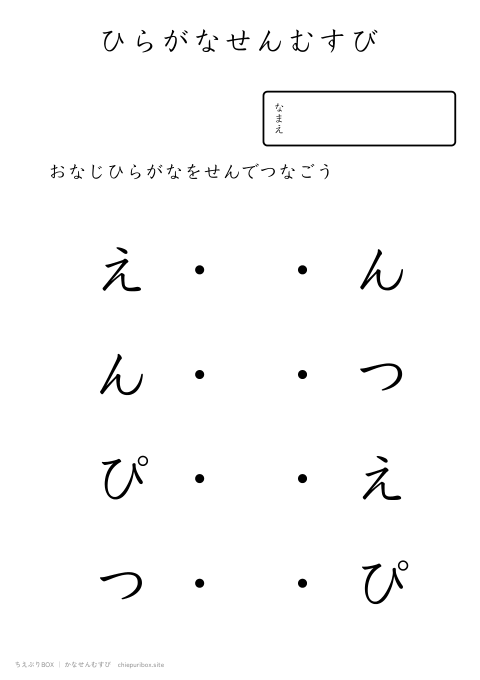 ひらがなせんむすび
なまえ
おなじひらがなをせんでつなごう
え ・ ・ ん
ん ・ ・ つ
ぴ ・ ・ え
つ ・ ・ ぴ
ちえぷりBOX | かなせんむすび chiepuribox.site